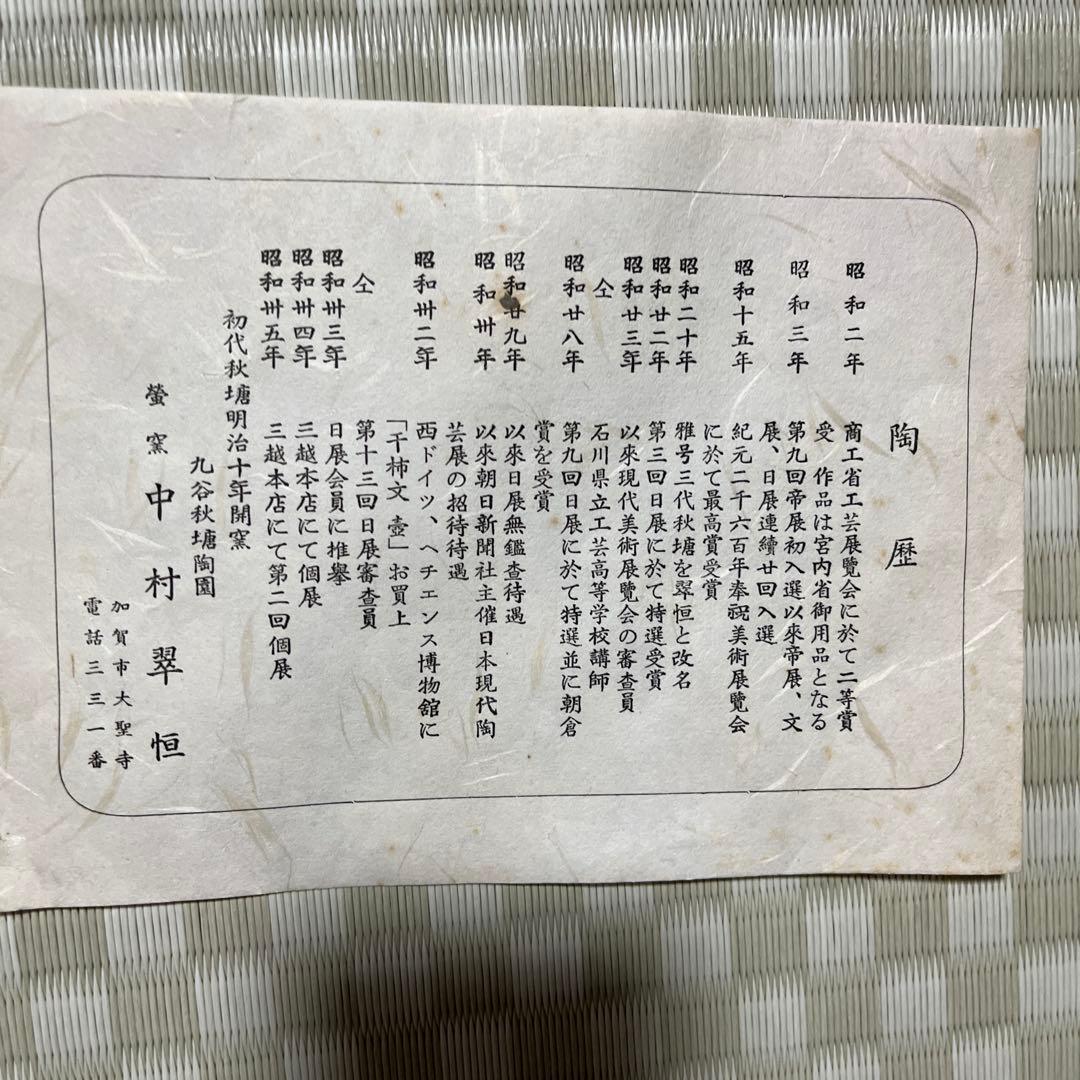 陶歴
昭和二年 商工省工芸展覧会に於て二等賞
受 作品は宮内省御用品となる
昭和三年 第九回帝展初入選以來帝展、文
展、日展連續廿回入選
昭和十五年 紀元二千六百年奉祝美術展覧会
に於て最高賞受賞
昭和二十年 雅号三代秋塘を翠恒と改名
昭和廿二年 第三回日展に於て特選受賞
昭和廿三年 以來現代美術展覧会の審査員
仝 石川県立工芸高等学校講師
昭和廿八年 第九回日展に於て特選並に朝倉
賞を受賞
昭和廿九年 以來日展無鑑査待遇
昭和卅年 以來朝日新聞社主催日本現代陶
芸展の招待待遇
昭和卅二年 西ドイツ、ヘチェンス博物舘に
「干柿文 壺」お買上
仝 第十三回日展審査員
昭和卅三年 日展会員に推擧
昭和卅四年 三越本店にて個展
昭和卅五年 三越本店にて第二回個展
初代秋塘明治十年開窯
九谷秋塘陶園
螢窯 中村翠恒
加賀市大聖寺
電話三三一番